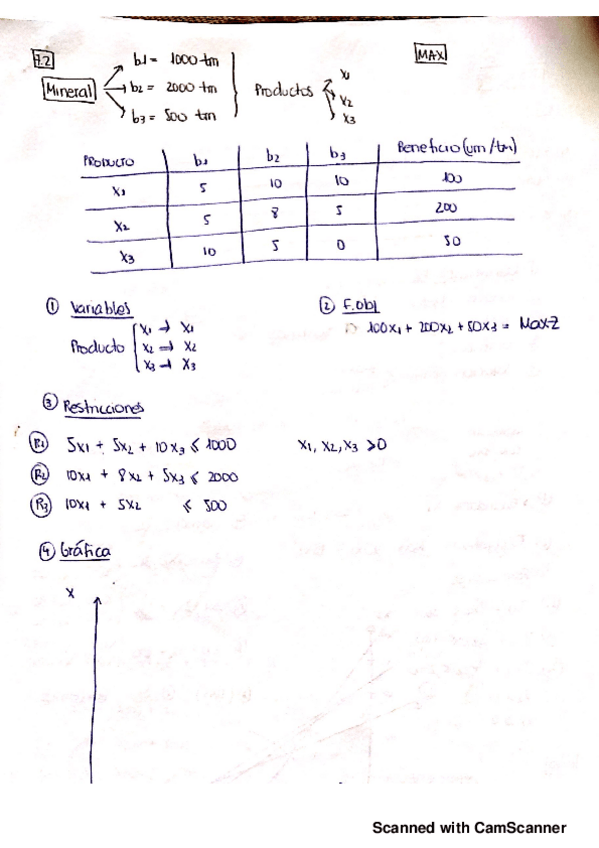 7.2
MAX
Mineral
b1 = 1000 tm
b2 = 2000 tm
b3 = 500 tm
Productos
X1
X2
X3
PRODUCTO b1 b2 b3 Beneficio (um/tm)
X1 5 10 10 100
X2 5 8 5 200
X3 10 5 0 50
① Variables
Producto
X1 → X1
X2 → X2
X3 → X3
② F.obj
100X1 + 200X2 + 50X3 = Max Z
③ Restricciones
R1 5X1 + 5X2 + 10X3 ≤ 1000 X1, X2, X3 >0
R2 10X1 + 8X2 + 5X3 ≤ 2000
R3 10X1 + 5X2 ≤ 500
④ Gráfica
X
Scanned with CamScanner